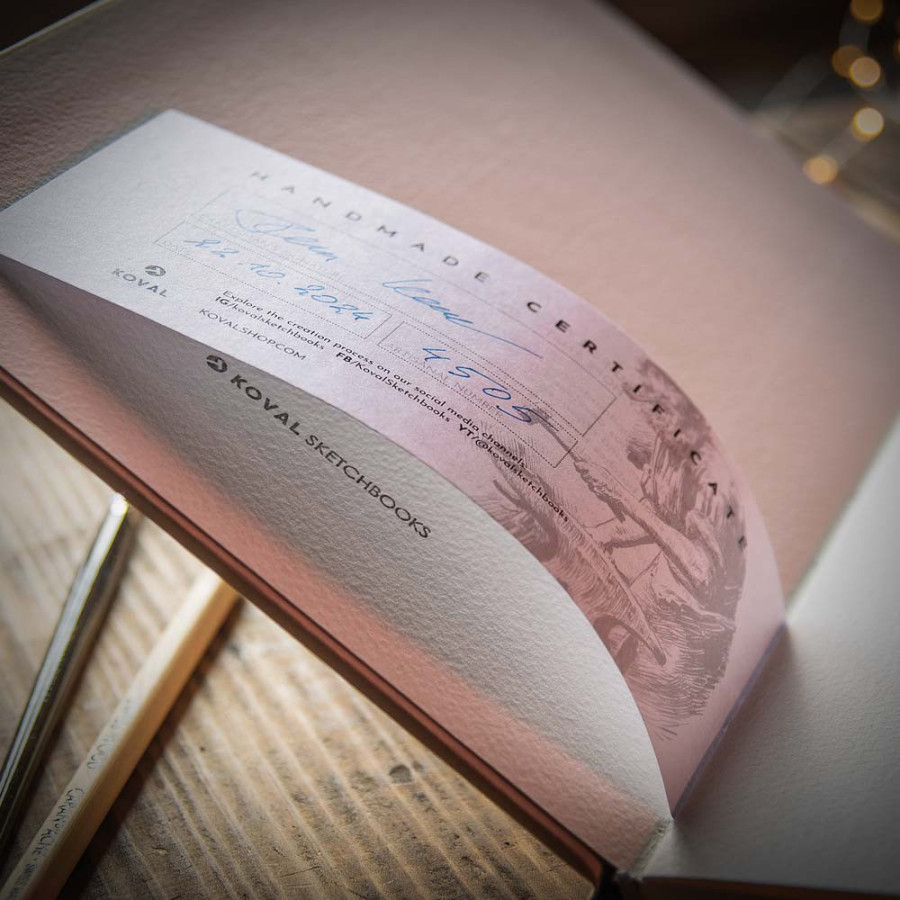 HANDMADE CERTIFICATE
22.10.2024
4505
KOVAL
Explore the creation process on our social media channels
IG/kovalsketchbooks FB/KovalSketchbooks YT/@kovalsketchbooks
KOVALSHOP.COM
KOVAL SKETCHBOOKS